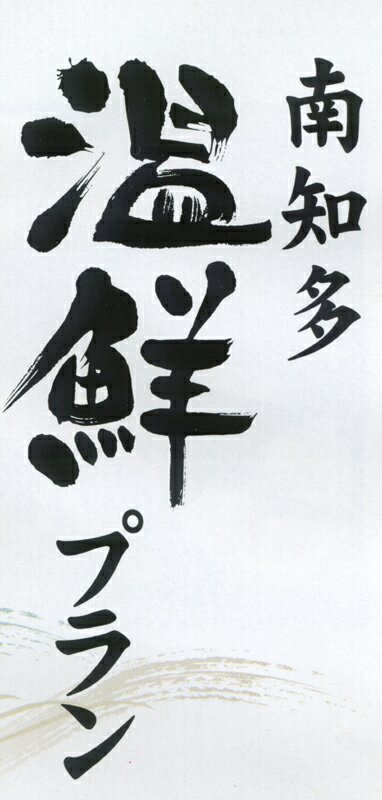 南知多
温鮮プラン